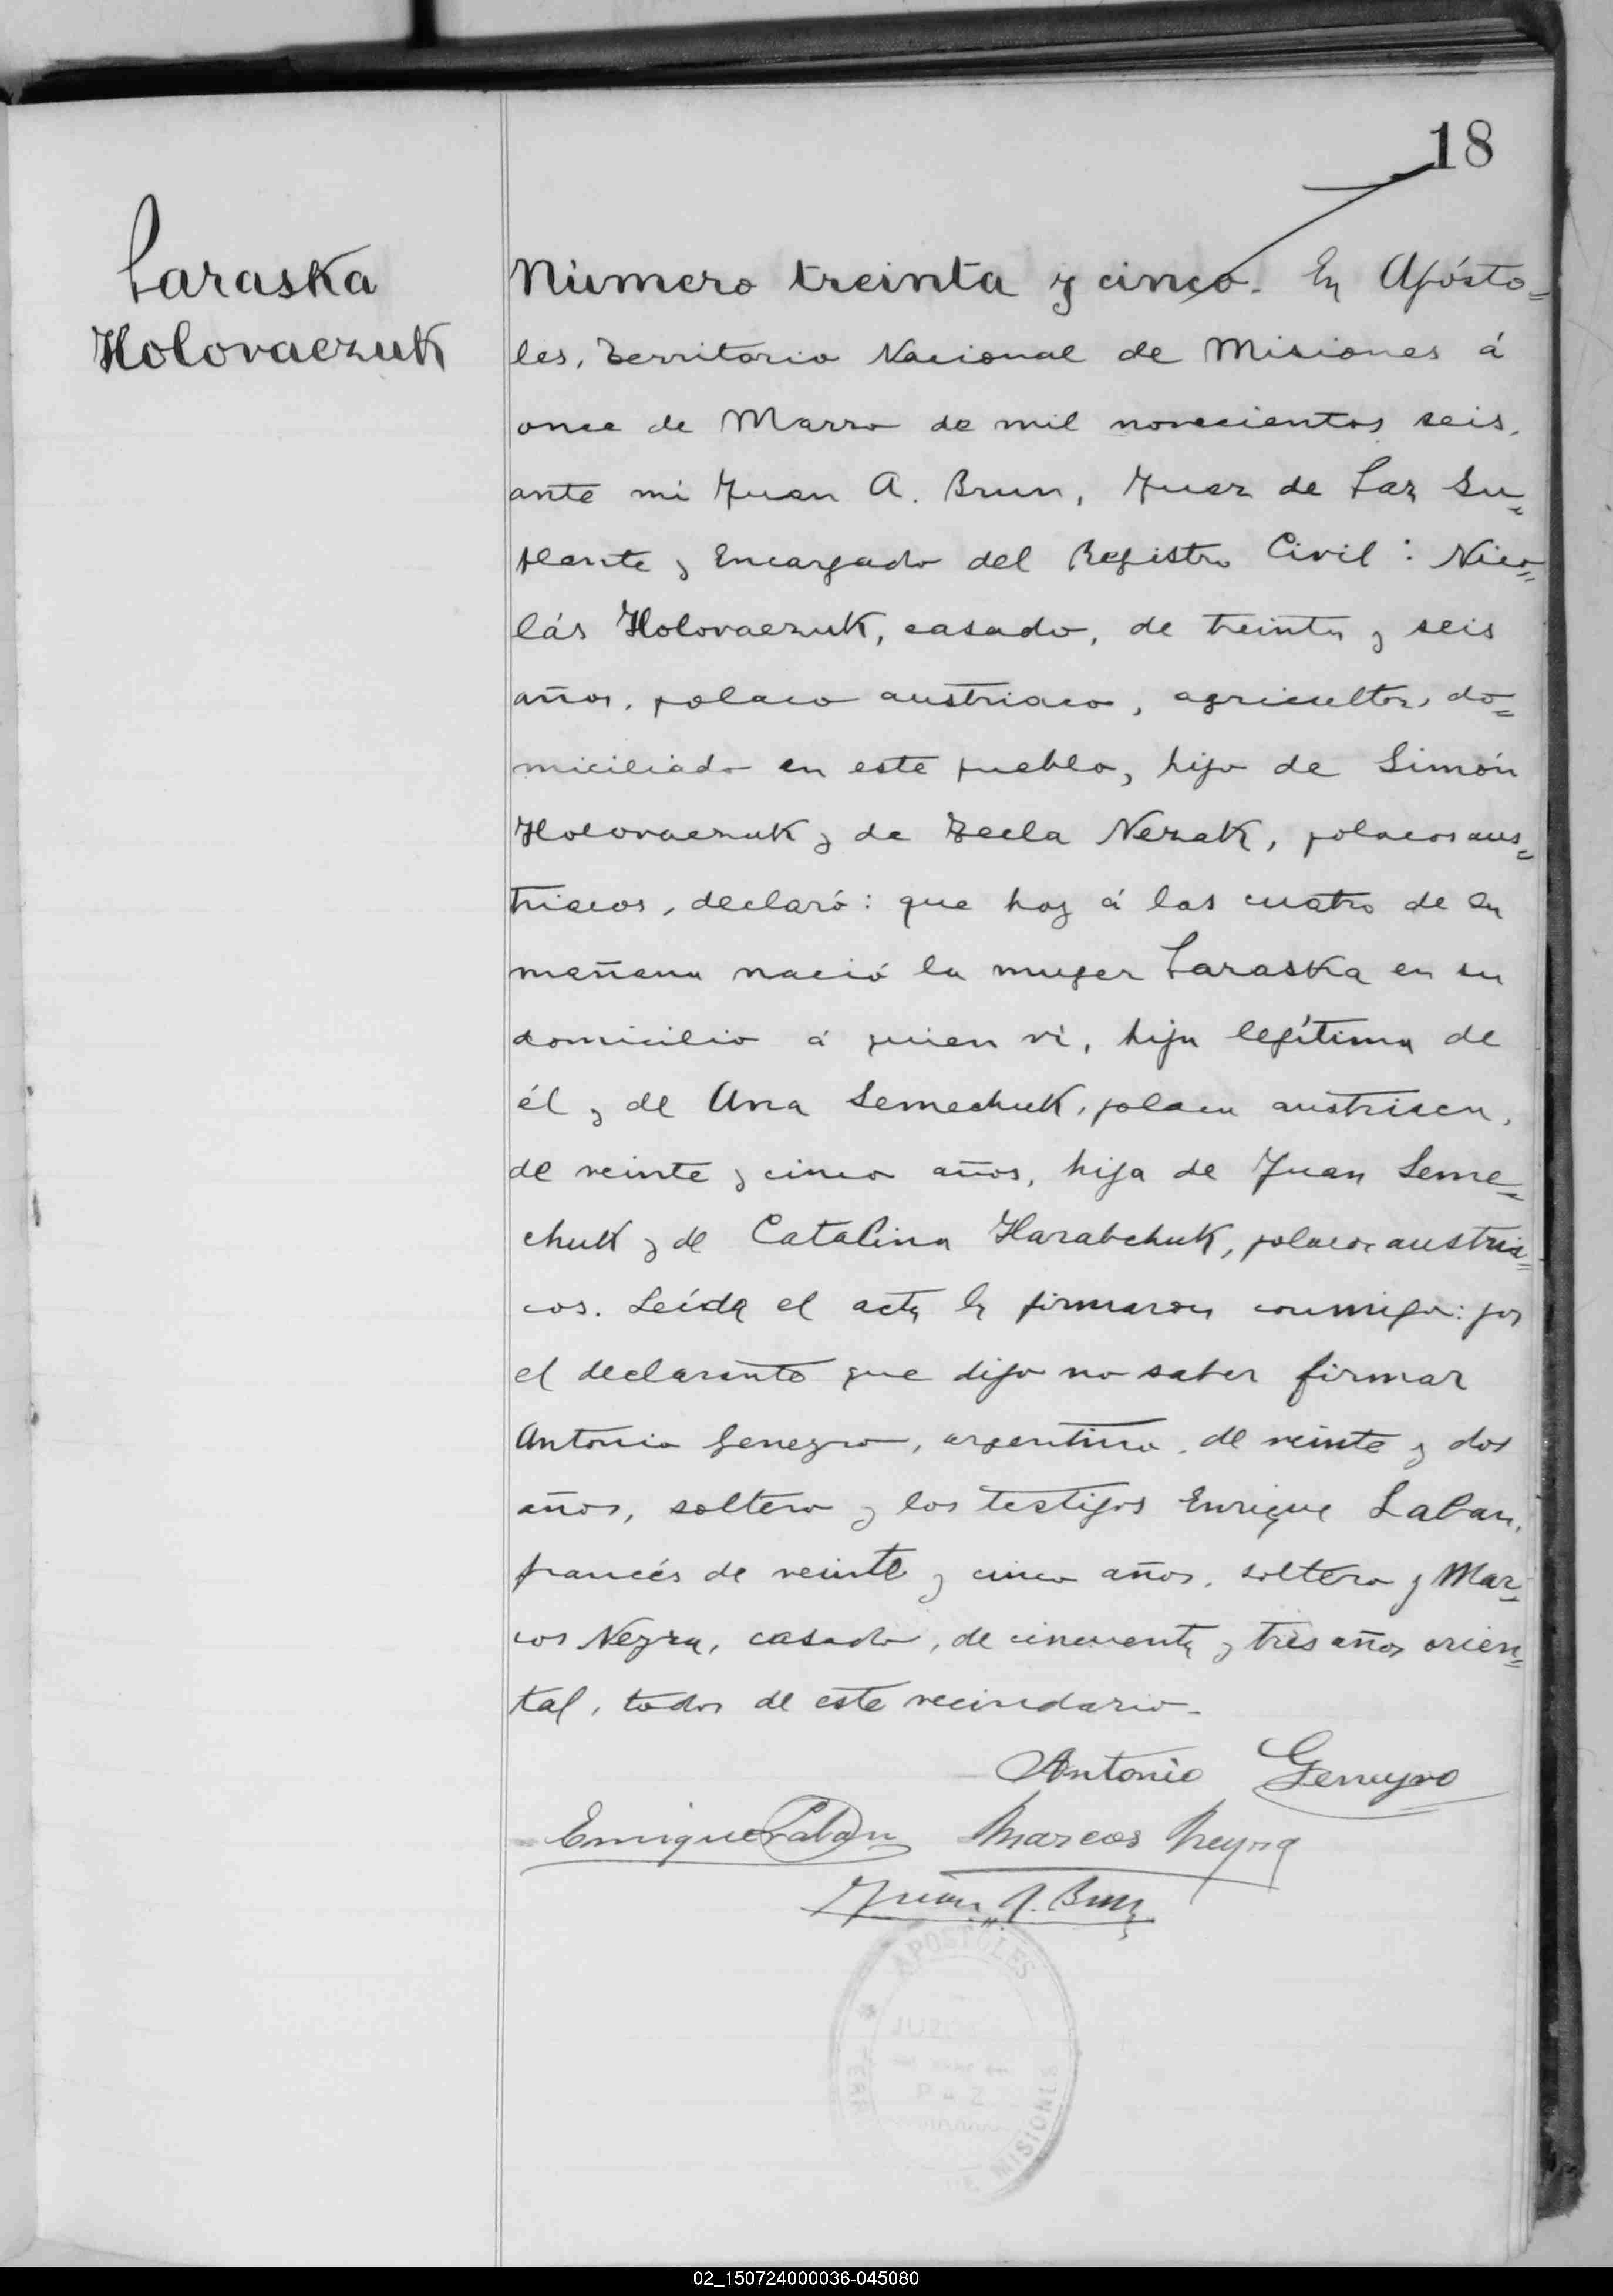 18
Paraska
Holovaczuk
Número treinta y cinco. En Apósto=
les, Territorio Nacional de Misiones á
once de Marzo de mil novecientos seis,
ante mi Juan A. Brun, Juez de Paz Su=
plente y Encargado del Registro Civil: Nico=
lás Holovaczuk, casado, de treinta y seis
años, polaco austriaco, agricultor, do=
miciliado en este pueblo, hijo de Simón
Holovaczuk y de Tecla Nezak, polacos aus=
triacos, declaró: que hoy á las cuatro de la
mañana nació la muger Paraska en su
domicilio á quien vi, hija legítima de
él y de Ana Semechuk, polaca austriaca,
de veinte y cinco años, hija de Juan Seme=
chuk y de Catalina Harabchuk, polacos austria=
cos. Leída el acta la firmaron conmigo: por
el declarante que dijo no saber firmar
Antonio Geneyro, argentino, de veinte y dos
años, soltero y los testigos Enrique Laban,
francés de veinte y cinco años, soltero y Mar=
cos Neyra, casado, de cincuenta y tres años orien=
tal, todos de este vecindario.
Antonio Geneyro
Enrique Laban Marcos Neyra
Juan A. Brun
APOSTOLES
JUZ
PAZ
MISIONES
02_150724000036-045080